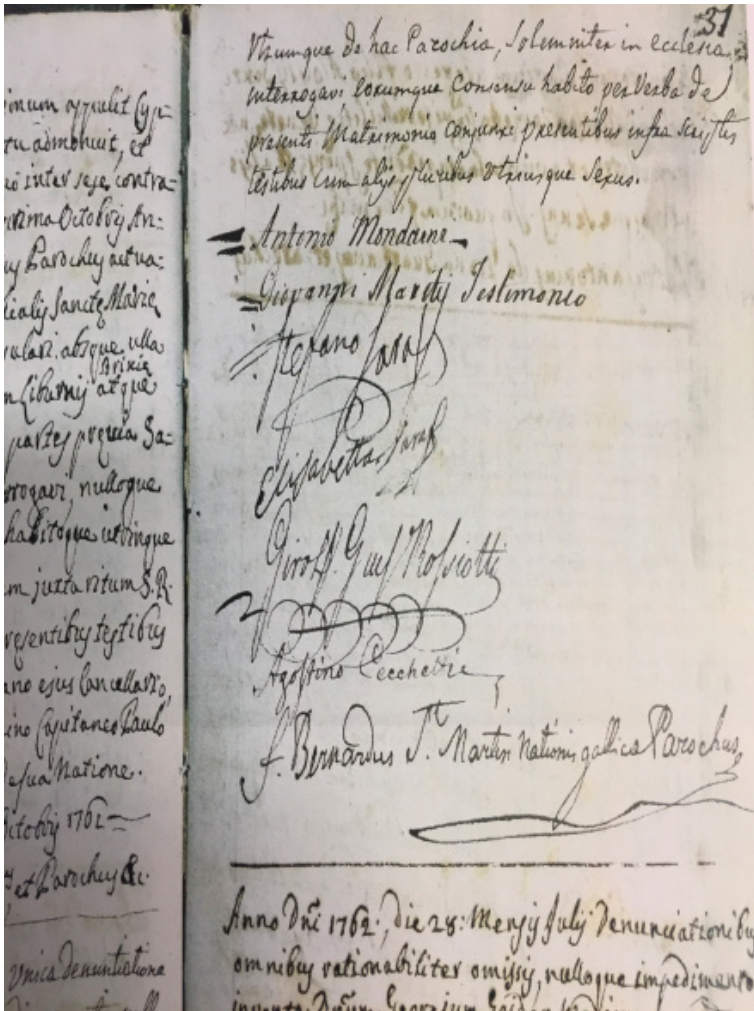 inum appulit Cyp=
tu admonuit, et
inter sese contra=
Octobris An:
us Parochus actua=
Sanctę Marię
absque ulla
Brixię
Liburnij atque
partes Sa=
rogavi, nulloque
habitoque utrinque
m juxta ritum S. R.
resentibus testibus
ano ejus Cancellario,
ino Capitaneo Paulo
sua Natione.
1761
et Parochus &c.
Unica denuntiatione
31
Utrumque de hac Parochia, solemniter in ecclesia
interrogavi, eorumque consensu habito per Verba de
presenti Matrimonio conjunxi presentibus infra scriptis
testibus cum alijs pluribus utriusque sexus.
Antonio Mondaine
Giovanni Testimonio
Stefano
Elisabetta
Rossiotti
Agostino Cecchetti
f. Bernardus St. Martin Nationis gallica Parochus
Anno Dni 1762, die 28: Mensis Julij Denunciationibus
omnibus rationabiliter omissis, nulloque impedimento